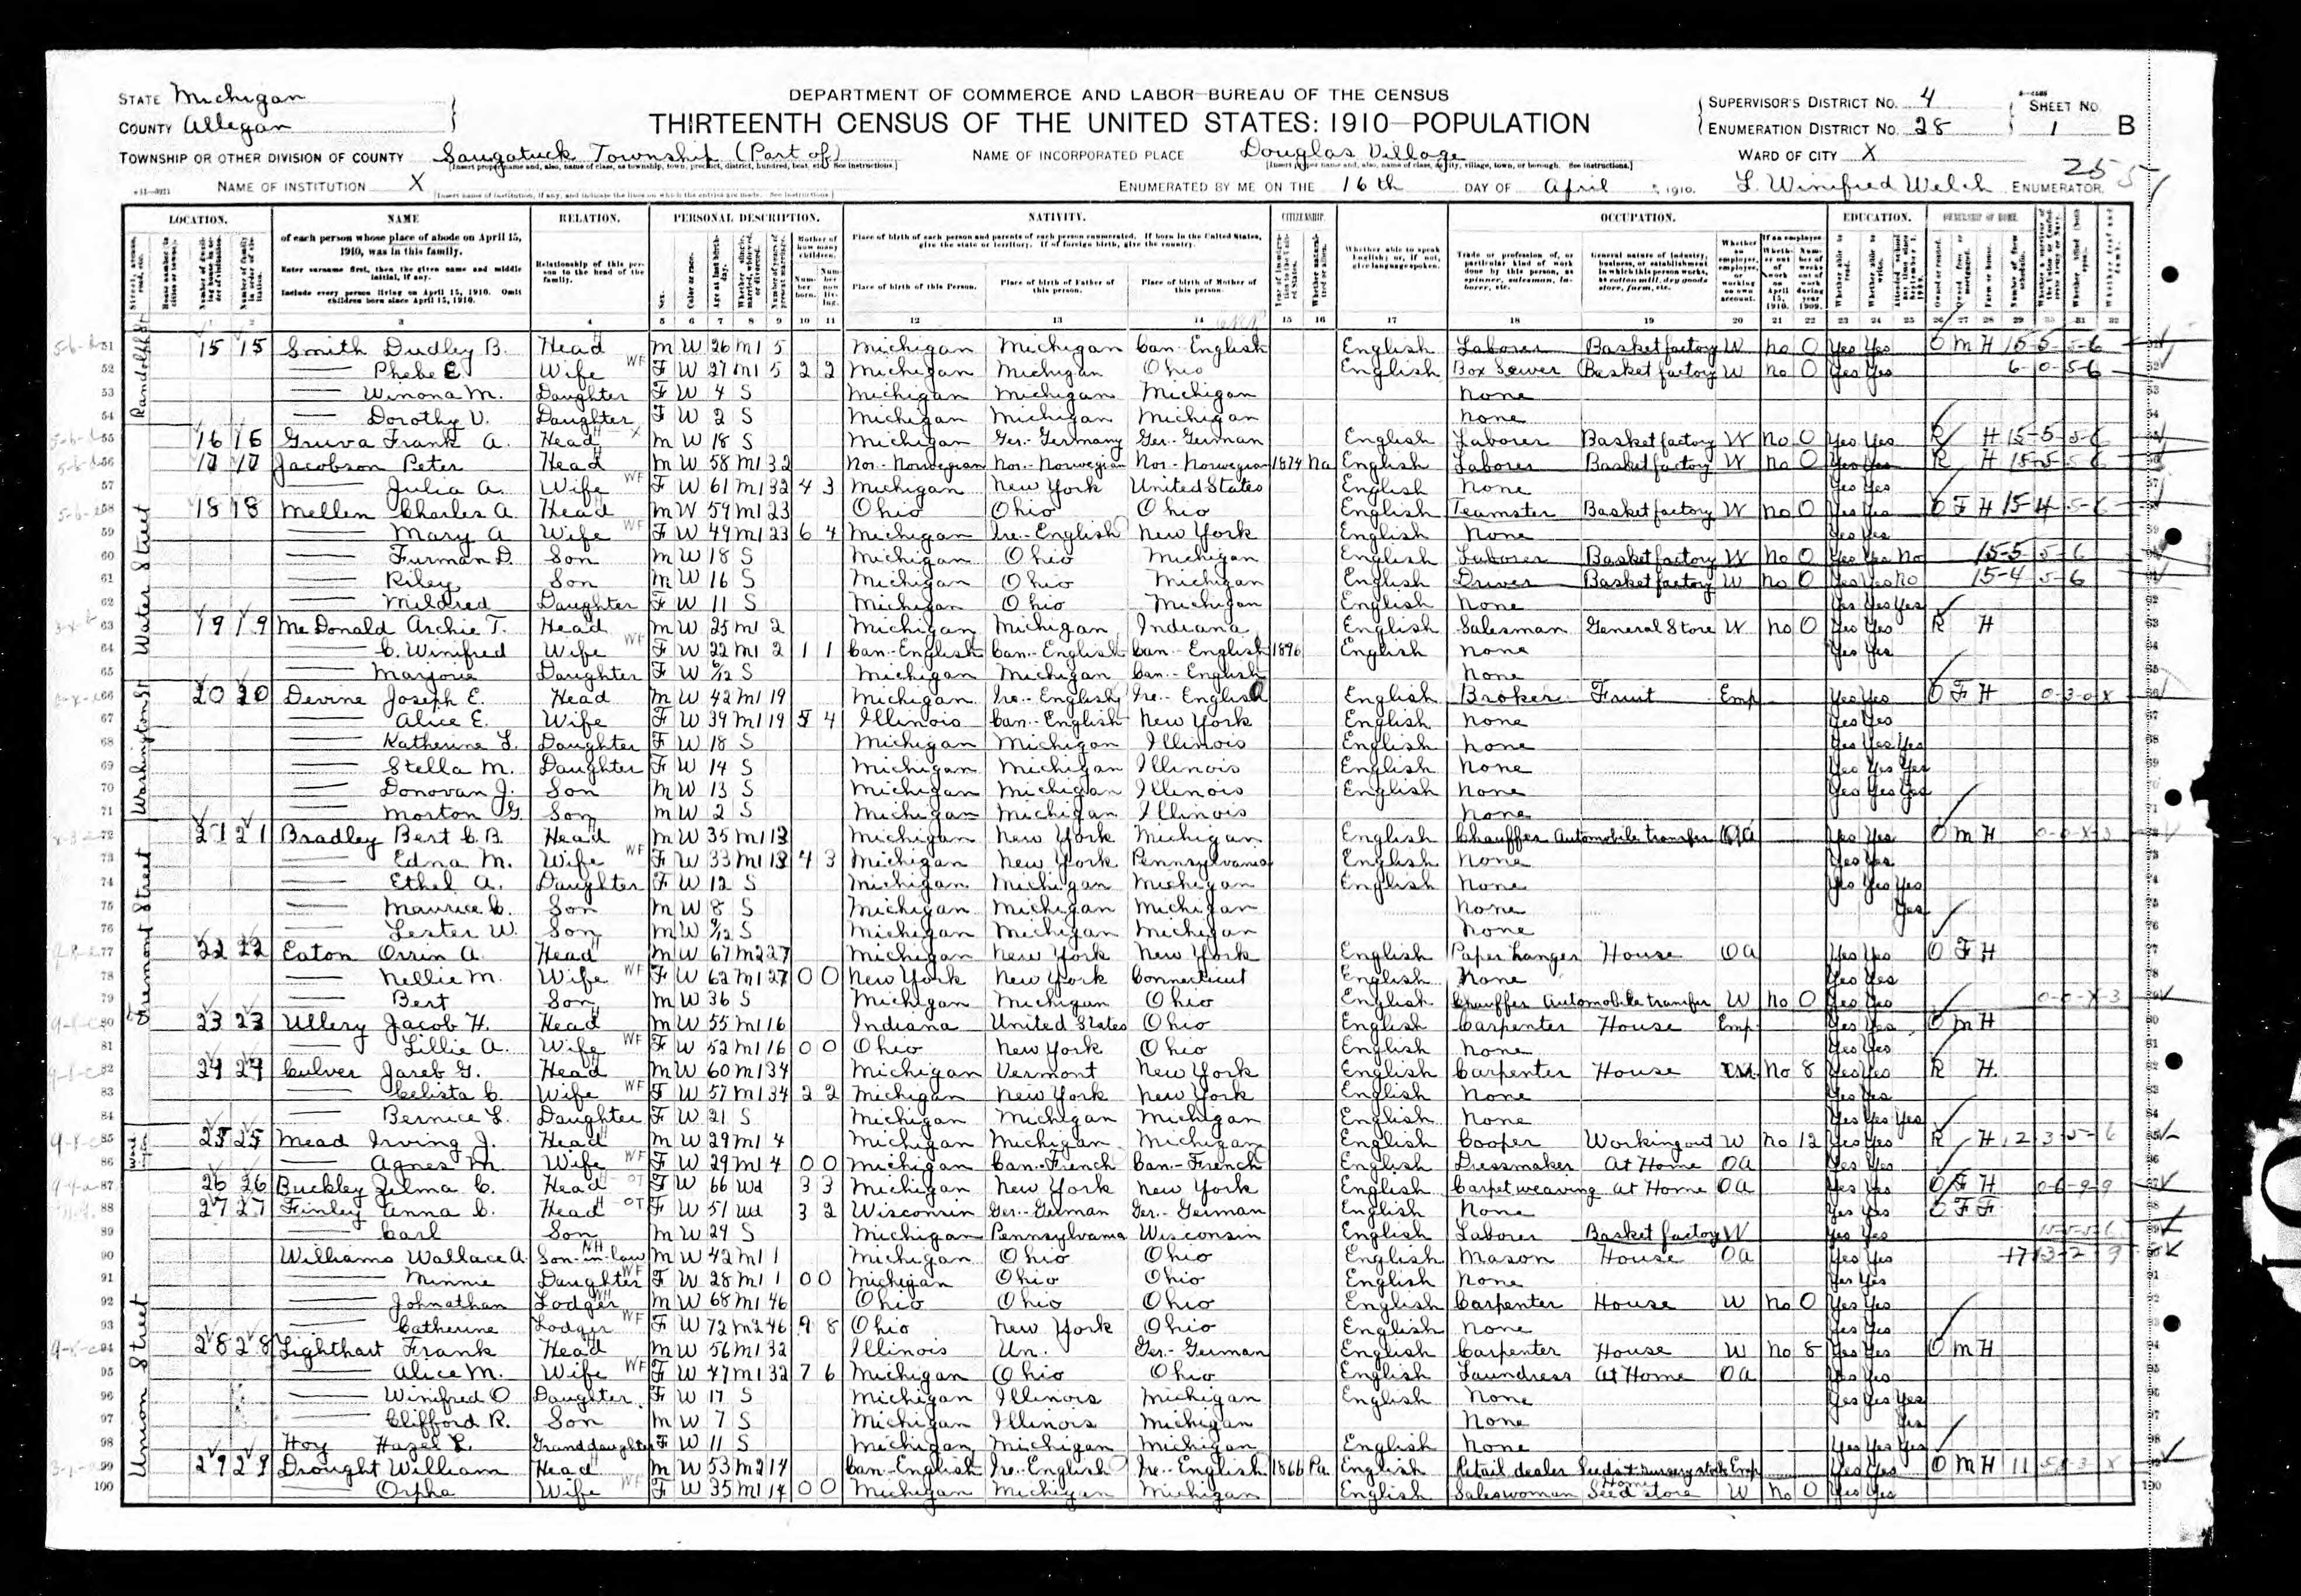 STATE Michigan
COUNTY Allegan
DEPARTMENT OF COMMERCE AND LABOR—BUREAU OF THE CENSUS
THIRTEENTH CENSUS OF THE UNITED STATES: 1910—POPULATION
SUPERVISOR'S DISTRICT No. 4
ENUMERATION DISTRICT No. 28
SHEET No. 1 B
TOWNSHIP OR OTHER DIVISION OF COUNTY Saugatuck Township (Part of)
NAME OF INCORPORATED PLACE Douglas Village
WARD OF CITY X
NAME OF INSTITUTION X
ENUMERATED BY ME ON THE 16th DAY OF April, 1910. L. Winifred Welch ENUMERATOR.
LOCATION. NAME RELATION. PERSONAL DESCRIPTION. NATIVITY. CITIZENSHIP. OCCUPATION. EDUCATION. OWNERSHIP OF HOME.
of each person whose place of abode on April 15, 1910, was in this family.
Enter surname first, then the given name and middle initial, if any.
Include every person living on April 15, 1910. Omit children born since April 15, 1910.
Relationship of this person to the head of the family.
Place of birth of each person and parents of each person enumerated. If born in the United States, give the state or territory. If of foreign birth, give the country.
Place of birth of this Person. Place of birth of Father of this person. Place of birth of Mother of this person.
Randolph St
15 15 Smith Dudley B. Head M W 26 M1 5 Michigan Michigan Can-English English Laborer Basket factory W No 0 Yes Yes O M H
52 Phebe E. Wife F W 27 M1 5 2 2 Michigan Michigan Ohio English Box Sewer Basket factory W No 0 Yes Yes
53 Winona M. Daughter F W 4 S Michigan Michigan Michigan None
54 Dorothy V. Daughter F W 2 S Michigan Michigan Michigan None
16 16 Gruva Frank A. Head M W 18 S Michigan Ger-Germany Ger-German English Laborer Basket factory W No 0 Yes Yes R H
17 17 Jacobson Peter Head M W 58 M1 32 Nor-Norwegian Nor-Norwegian Nor-Norwegian 1874 Na English Laborer Basket factory W No 0 Yes Yes R H
57 Julia A. Wife F W 61 M1 32 4 3 Michigan New York United States English None Yes Yes
Water Street
18 18 Mellen Charles A. Head M W 59 M1 23 Ohio Ohio Ohio English Teamster Basket factory W No 0 Yes Yes O F H
59 Mary A Wife F W 49 M1 23 6 4 Michigan Ire-English New York English None Yes Yes
60 Furman D. Son M W 18 S Michigan Ohio Michigan English Laborer Basket factory W No 0 Yes Yes No
61 Riley Son M W 16 S Michigan Ohio Michigan English Driver Basket factory W No 0 Yes Yes No
62 Mildred Daughter F W 11 S Michigan Ohio Michigan English None Yes Yes Yes
63 19 19 McDonald Archie T. Head M W 25 M1 2 Michigan Michigan Indiana English Salesman General Store W No 0 Yes Yes R H
64 C. Winifred Wife F W 22 M1 2 1 1 Can-English Can-English Can-English 1896 English None Yes Yes
65 Marjorie Daughter F W Michigan Michigan Can-English None
Washington St
20 20 Devine Joseph E. Head M W 42 M1 19 Michigan Ire-English Ire-English English Broker Fruit Emp Yes Yes O F H
67 Alice E. Wife F W 39 M1 19 5 4 Illinois Can-English New York English None Yes Yes
68 Katherine L. Daughter F W 18 S Michigan Michigan Illinois English None Yes Yes Yes
69 Stella M. Daughter F W 14 S Michigan Michigan Illinois English None Yes Yes Yes
70 Donovan J. Son M W 13 S Michigan Michigan Illinois English None Yes Yes Yes
71 Morton G. Son M W 2 S Michigan Michigan Illinois None
Fremont Street
21 21 Bradley Bert C. B. Head M W 35 M1 13 Michigan New York Michigan English Chauffer Automobile transfer OA Yes Yes O M H
73 Edna M. Wife F W 33 M1 13 4 3 Michigan New York Pennsylvania English None Yes Yes
74 Ethel A. Daughter F W 12 S Michigan Michigan Michigan English None Yes Yes Yes
75 Maurice C. Son M W 8 S Michigan Michigan Michigan None Yes
76 Lester W. Son M W S Michigan Michigan Michigan None
77 22 22 Eaton Orrin A. Head M W 67 M2 27 Michigan New York New York English Paper hanger House OA Yes Yes O F H
78 Nellie M. Wife F W 62 M1 27 0 0 New York New York Connecticut English None Yes Yes
79 Bert Son M W 36 S Michigan Michigan Ohio English Chauffer Automobile transfer W No 0 Yes Yes
23 23 Ullery Jacob H. Head M W 55 M1 16 Indiana United States Ohio English Carpenter House Emp Yes Yes O M H
81 Lillie A. Wife F W 52 M1 16 0 0 Ohio New York Ohio English None Yes Yes
24 24 Culver Jareb G. Head M W 60 M1 34 Michigan Vermont New York English Carpenter House No 8 Yes Yes R H
83 Celista C. Wife F W 57 M1 34 2 2 Michigan New York New York English None Yes Yes
84 Bernice L. Daughter F W 21 S Michigan Michigan Michigan English None Yes Yes Yes
25 25 Mead Irving J. Head M W 29 M1 4 Michigan Michigan Michigan English Cooper Working out W No 12 Yes Yes R H
86 Agnes M. Wife F W 29 M1 4 0 0 Michigan Can-French Can-French English Dressmaker At Home OA Yes Yes
87 26 26 Buckley Zelma C. Head F W 66 Wd 3 3 Michigan New York New York English Carpet weaving At Home OA Yes Yes O F H
88 27 27 Finley Anna C. Head F W 51 Wd 3 2 Wisconsin Ger-German Ger-German English None Yes Yes O F F
89 Carl Son M W 24 S Michigan Pennsylvania Wisconsin English Laborer Basket factory W Yes Yes
90 Williams Wallace A. Son-in-law M W 42 M1 1 Michigan Ohio Ohio English Mason House OA Yes Yes
91 Minnie Daughter F W 28 M1 1 0 0 Michigan Ohio Ohio English None Yes Yes
Union Street
92 Johnathan Lodger M W 68 M1 46 Ohio Ohio Ohio English Carpenter House W No 0 Yes Yes
93 Catherine Lodger F W 72 M2 46 9 8 Ohio New York Ohio English None Yes Yes
28 28 Lighthart Frank Head M W 56 M1 32 Illinois Un. Ger-German English Carpenter House W No 8 Yes Yes O M H
95 Alice M. Wife F W 47 M1 32 7 6 Michigan Ohio Ohio English Laundress At Home OA Yes Yes
96 Winifred O Daughter F W 17 S Michigan Illinois Michigan English None Yes Yes Yes
97 Clifford R. Son M W 7 S Michigan Illinois Michigan None Yes
98 Hoy Hazel L. Granddaughter F W 11 S Michigan Michigan Michigan English None Yes Yes Yes
29 29 Drought William Head M W 53 M2 14 Can-English Ire-English Ire-English 1866 Pa English Retail dealer Seeds & nursery stock Emp Yes Yes O M H
100 Orpha Wife F W 35 M1 14 0 0 Michigan Michigan Michigan English Saleswoman Seed store W No 0 Yes Yes